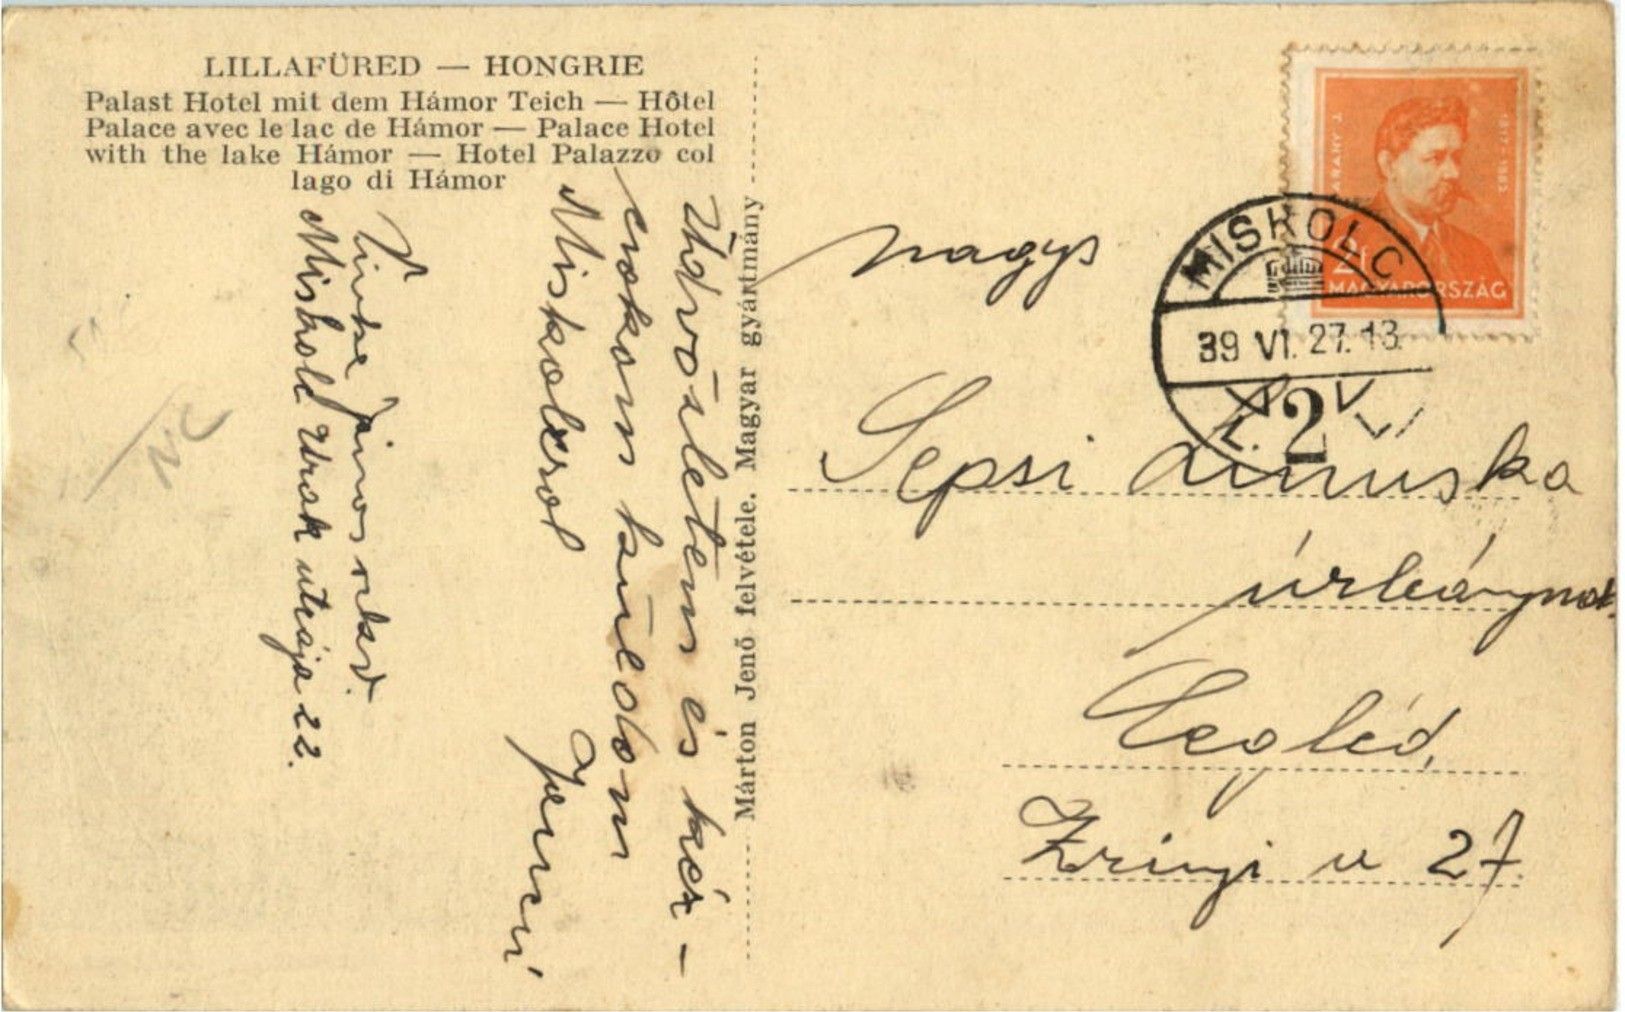 LILLAFÜRED — HONGRIE
Palast Hotel mit dem Hámor Teich — Hôtel
Palace avec le lac de Hámor — Palace Hotel
with the lake Hámor — Hotel Palazzo col
lago di Hámor
Üdvözletem és kéz-
csókom küldöm
Miskolcról
Jancsi
Vincze János
Miskolc Urak utcája 22.
Márton Jenő felvétele. Magyar gyártmány
ARANY J.
1817-1882
2f
MAGYARORSZÁG
MISKOLC
39 VI. 27. 13
2
nagys
Sepsi Annuska
úrleánynak
Cegléd,
Zrinyi u 27.